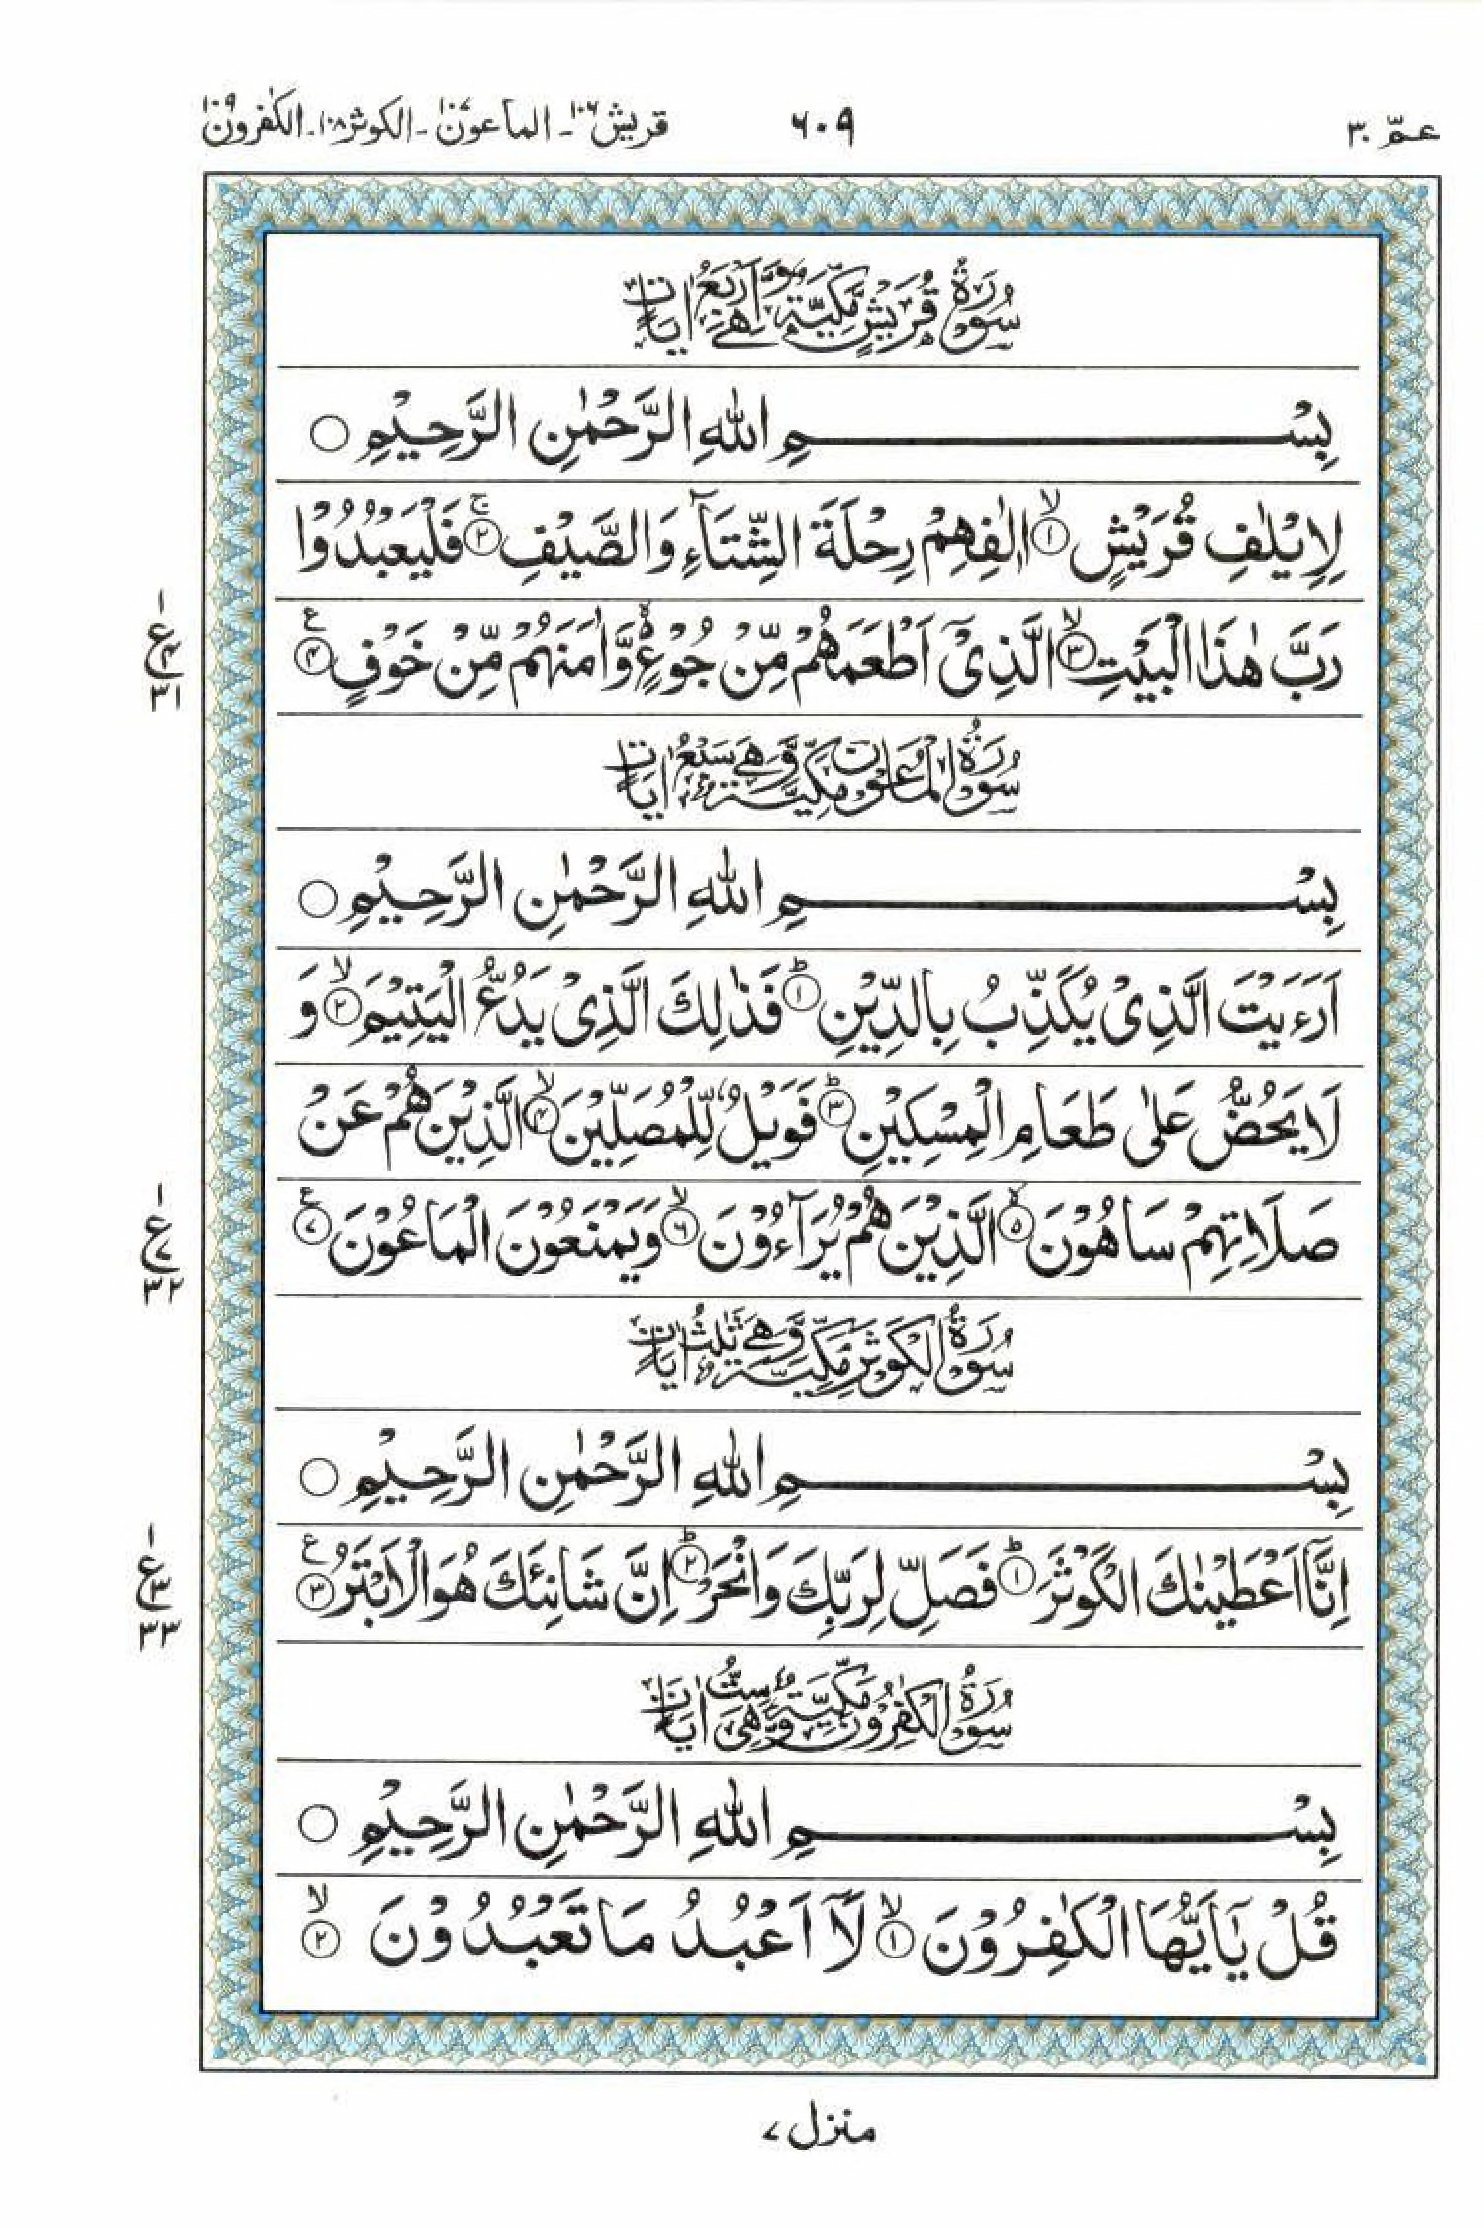 عـمّ ٣٠
٦٠٩
قريش ١٠٦ - الماعون ١٠٧ - الكوثر ١٠٨ - الكٰفرون ١٠٩
سُوْرَةُ قُرَيْشٍ مَّكِّيَّةٌ وَّهِيَ اَرْبَعُ اٰيَاتٍ
بِسْمِ اللهِ الرَّحْمٰنِ الرَّحِيْمِ ○
لِاِيْلٰفِ قُرَيْشٍ ۙ﴿١﴾ اٖلٰفِهِمْ رِحْلَةَ الشِّتَآءِ وَالصَّيْفِ ۚ﴿٢﴾ فَلْيَعْبُدُوْا
رَبَّ هٰذَا الْبَيْتِ ۙ﴿٣﴾ الَّذِيْٓ اَطْعَمَهُمْ مِّنْ جُوْعٍ ۬ۙ وَّاٰمَنَهُمْ مِّنْ خَوْفٍ ﴿٤﴾ ع
١
ع ٤
٣١
سُوْرَةُ الْمَاعُوْنِ مَكِّيَّةٌ وَّهِيَ سَبْعُ اٰيَاتٍ
بِسْمِ اللهِ الرَّحْمٰنِ الرَّحِيْمِ ○
اَرَءَيْتَ الَّذِيْ يُكَذِّبُ بِالدِّيْنِ ؕ﴿١﴾ فَذٰلِكَ الَّذِيْ يَدُعُّ الْيَتِيْمَ ۙ﴿٢﴾ وَ
لَا يَحُضُّ عَلٰى طَعَامِ الْمِسْكِيْنِ ؕ﴿٣﴾ فَوَيْلٌ لِّلْمُصَلِّيْنَ ۙ﴿٤﴾ الَّذِيْنَ هُمْ عَنْ
صَلَاتِهِمْ سَاهُوْنَ ۙ﴿٥﴾ الَّذِيْنَ هُمْ يُرَآءُوْنَ ۙ﴿٦﴾ وَيَمْنَعُوْنَ الْمَاعُوْنَ ﴿٧﴾ ع
١
ع ٧
٣٢
سُوْرَةُ الْكَوْثَرِ مَكِّيَّةٌ وَّهِيَ ثَلٰثُ اٰيَاتٍ
بِسْمِ اللهِ الرَّحْمٰنِ الرَّحِيْمِ ○
اِنَّآ اَعْطَيْنٰكَ الْكَوْثَرَ ؕ﴿١﴾ فَصَلِّ لِرَبِّكَ وَانْحَرْ ؕ﴿٢﴾ اِنَّ شَانِئَكَ هُوَ الْاَبْتَرُ ﴿٣﴾ ع
١
ع ٣
٣٣
سُوْرَةُ الْكٰفِرُوْنَ مَكِّيَّةٌ وَّهِيَ سِتُّ اٰيَاتٍ
بِسْمِ اللهِ الرَّحْمٰنِ الرَّحِيْمِ ○
قُلْ يٰٓاَيُّهَا الْكٰفِرُوْنَ ۙ﴿١﴾ لَآ اَعْبُدُ مَا تَعْبُدُوْنَ ۙ﴿٢﴾
منزل ٧